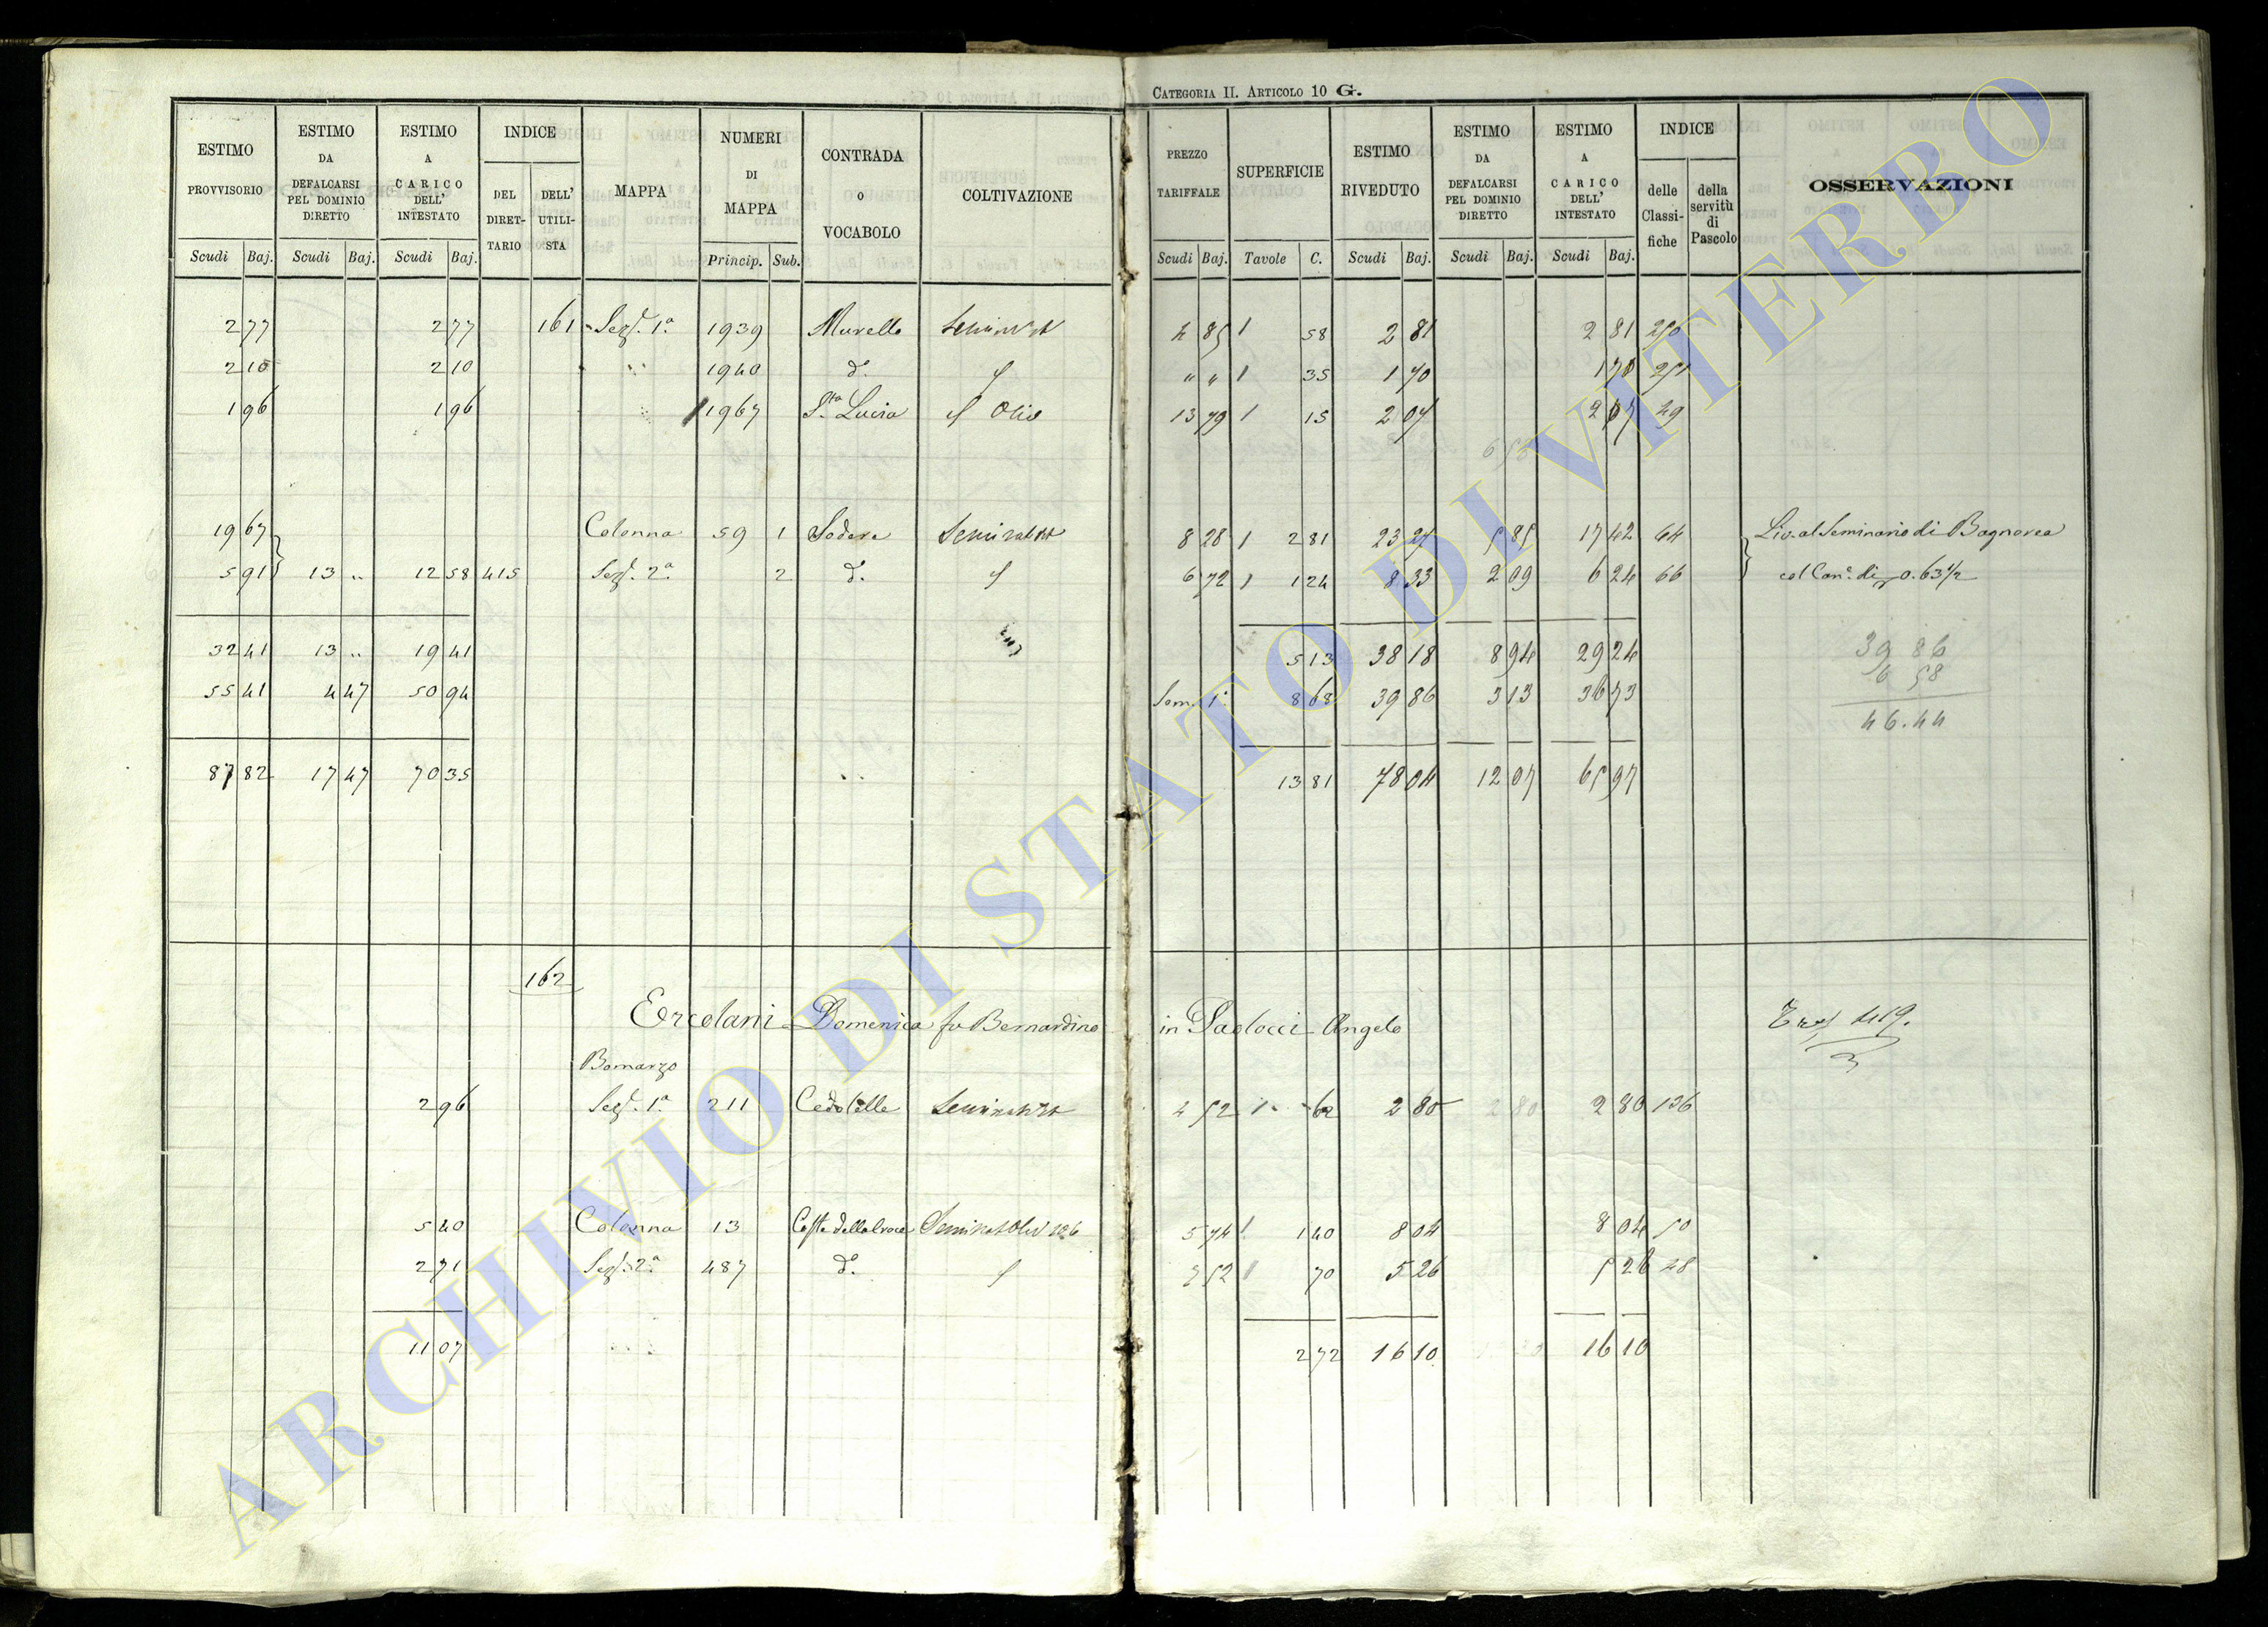 CATEGORIA II. ARTICOLO 10 G.
ESTIMO PROVVISORIO Scudi Baj. ESTIMO DA DEFALCARSI PEL DOMINIO DIRETTO Scudi Baj. ESTIMO A CARICO DELL' INTESTATO Scudi Baj. INDICE DEL DIRETTARIO DELL' UTILISTA MAPPA NUMERI DI MAPPA Princip. Sub. CONTRADA O VOCABOLO COLTIVAZIONE
PREZZO TARIFFALE Scudi Baj. SUPERFICIE Tavole C. ESTIMO RIVEDUTO Scudi Baj. ESTIMO DA DEFALCARSI PEL DOMINIO DIRETTO Scudi Baj. ESTIMO A CARICO DELL' INTESTATO Scudi Baj. INDICE delle Classifiche della servitù di Pascolo OSSERVAZIONI
2 77 2 77 161 Sezẽ. 1ª 1939 Murello Seminat 4 85 1 58 2 81 2 81 250
2 10 2 10 " 1940 dº. " " 1 35 1 70 1 70 251
1 96 1 96 1967 Sta. Lucia Oliv 13 79 1 15 2 07 2 07 29
19 67 Colonna 59 1 Sodere Seminat 8 28 1 2 81 23 27 5 85 17 42 64 Liv. al Seminario di Bagnorea
5 91 13 " 12 58 415 Sezẽ. 2ª 2 dº. 6 72 1 1 24 8 33 2 09 6 24 66 col Cane. di 0.63½
32 41 13 " 19 41 5 13 38 18 8 94 29 24 39 86
55 41 4 47 50 94 Som. 1ª 8 68 39 86 3 13 36 73 6 58
46.44
87 82 17 47 70 35 13 81 78 04 12 07 65 97
162
Ercolani Domenica fu Bernardino in Paolocci Angelo
419.
Bomarzo
2 96 Sezẽ. 1ª 211 Cedolelle Seminat 4 52 1 62 2 80 2 80 2 80 136
5 40 Colonna 13 Coste della Croce Seminat Oliv 5 74 1 1 40 8 04 8 04 50
2 71 Sezẽ. 2ª 487 dº. 7 52 1 70 5 26 5 26 28
11 07 2 72 16 10 16 10
ARCHIVIO DI STATO DI VITERBO